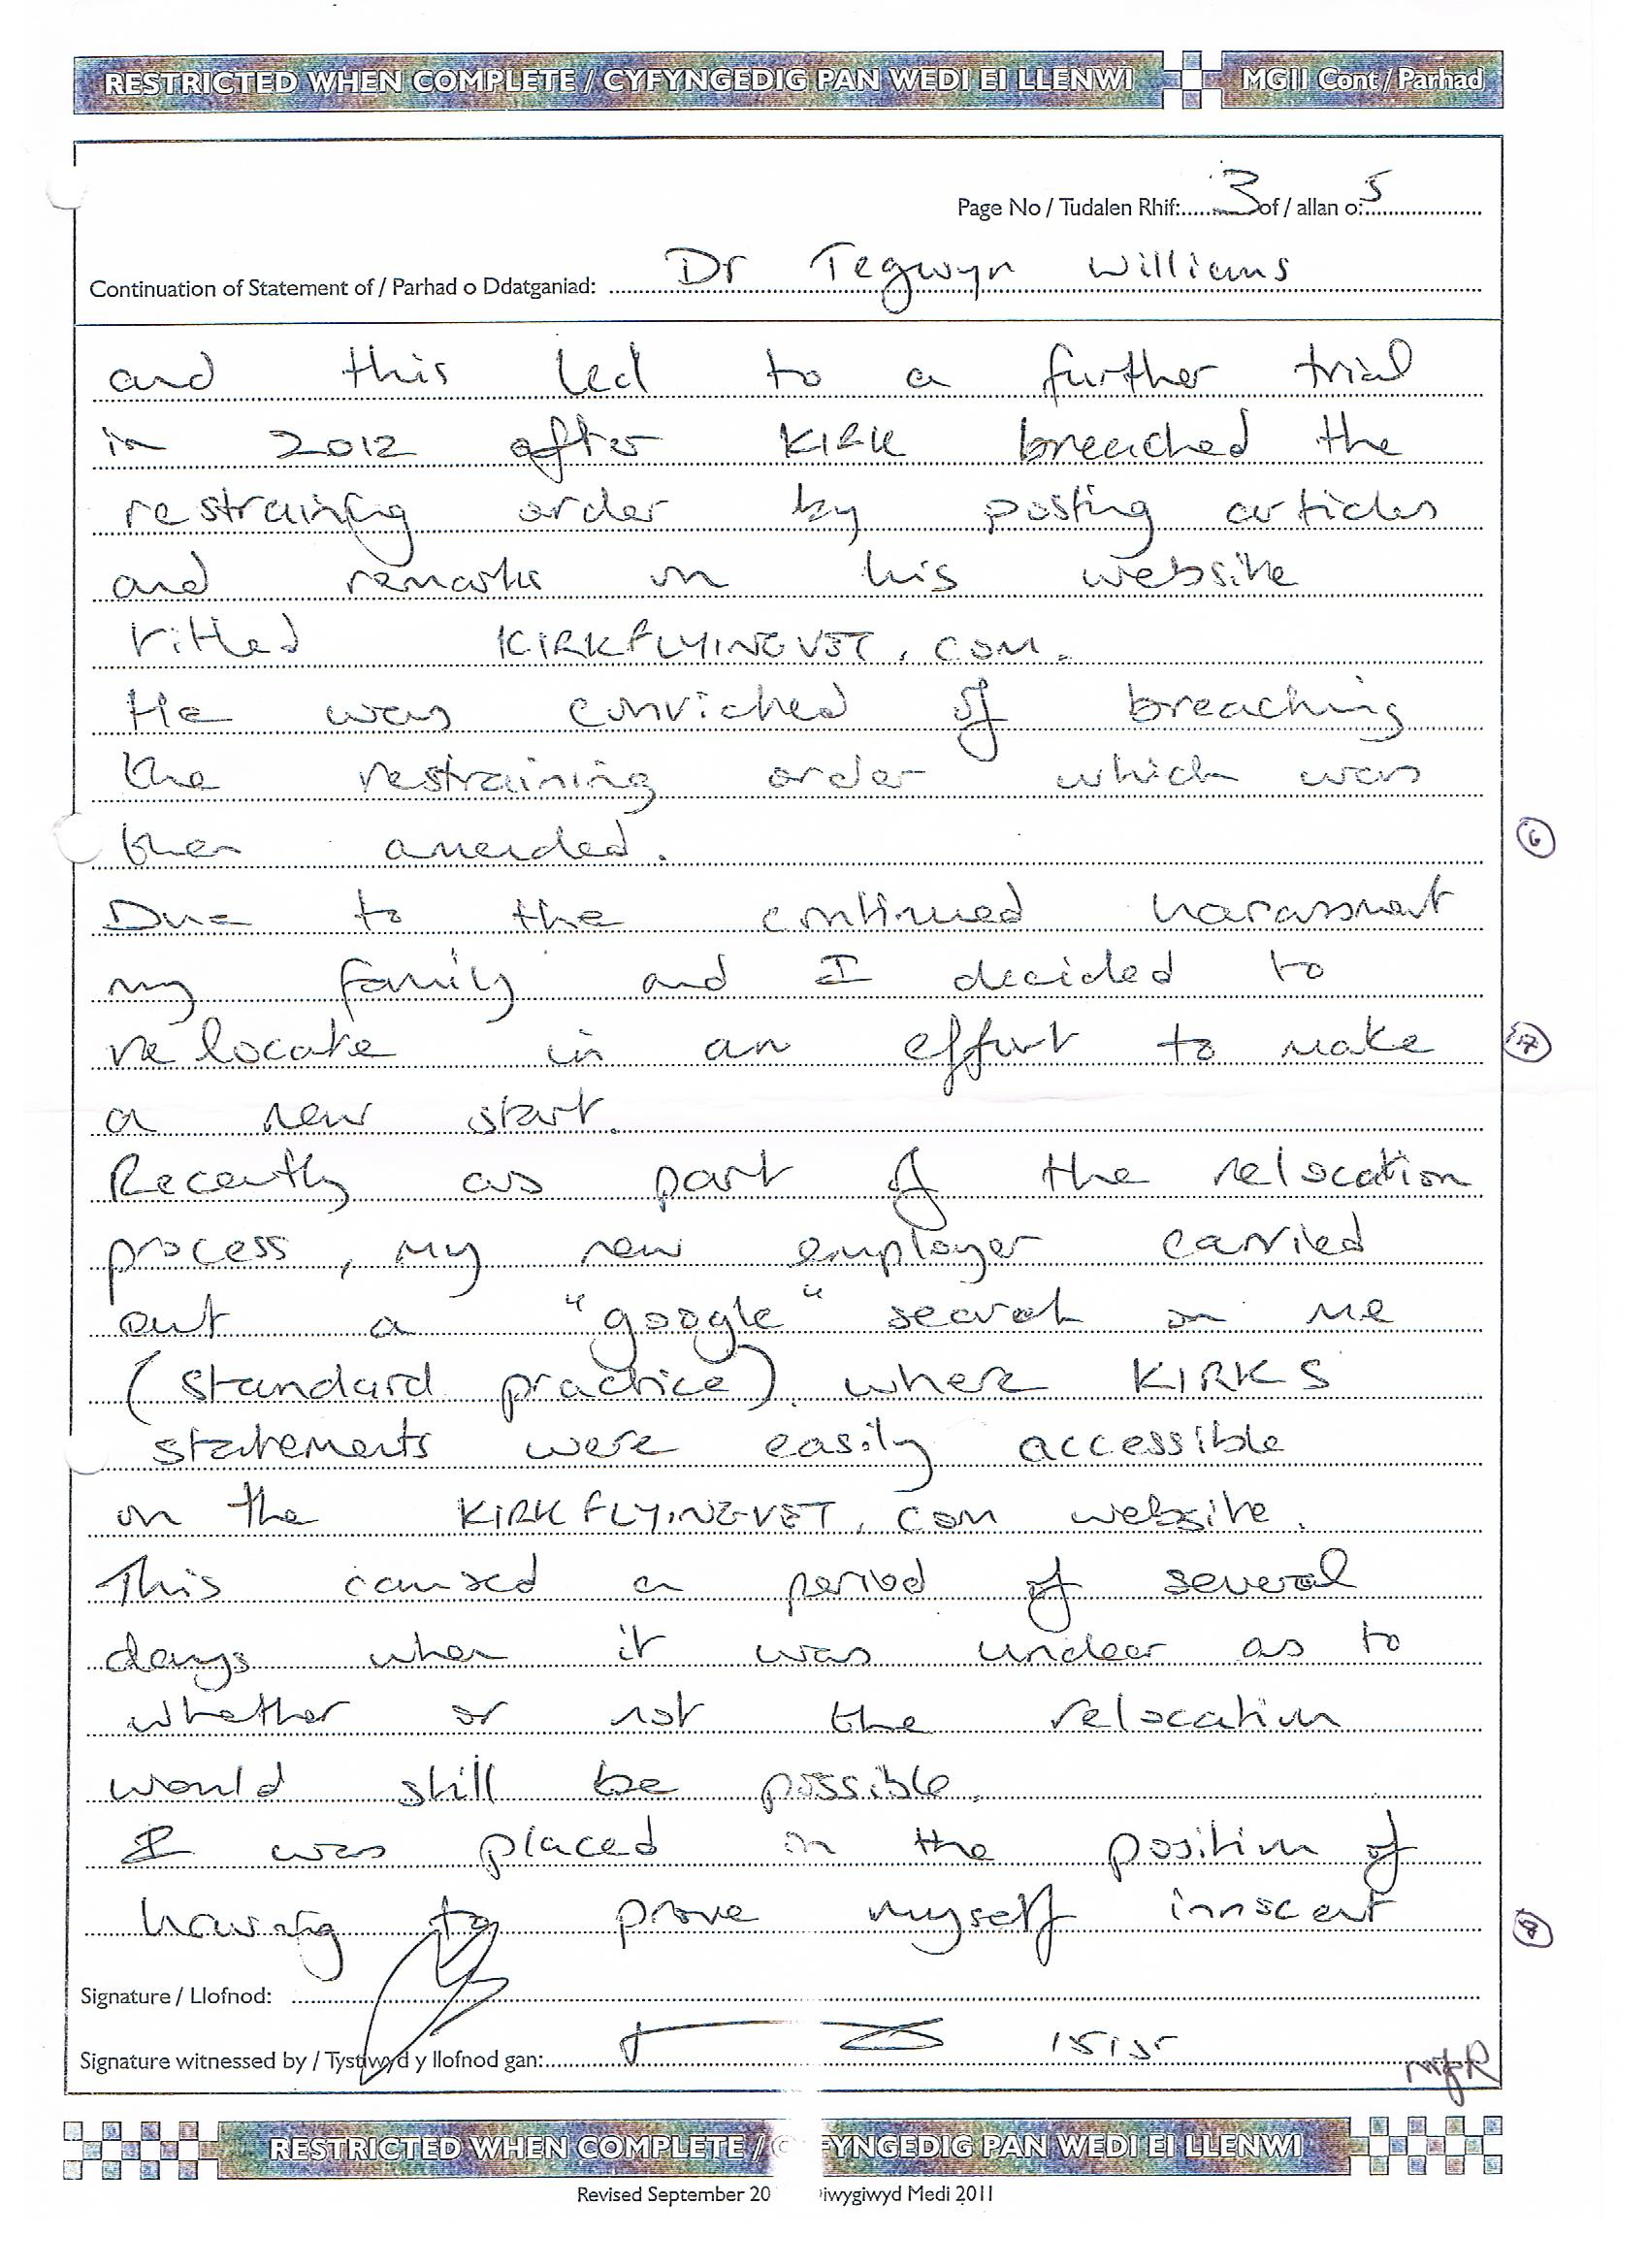 RESTRICTED WHEN COMPLETE / CYFYNGEDIG PAN WEDI EI LLENWI
MG11 Cont / Parhad
Page No / Tudalen Rhif: 3 of / allan o: 5
Continuation of Statement of / Parhad o Ddatganiad: Dr Tegwyn Williams
and this led to a further trial
in 2012 after KIRK breached the
restraining order by posting articles
and remarks on his website
titled KIRKFLYINGVET.COM.
He was convicted of breaching
the restraining order which was
then amended.
6
Due to the continued harassment
my family and I decided to
relocate in an effort to make
17
a new start.
Recently as part of the relocation
process, my new employer carried
out a "google" search on me
(standard practice) where KIRKS
statements were easily accessible
on the KIRKFLYINGVET.COM website.
This caused a period of several
days when it was unclear as to
whether or not the relocation
would still be possible.
I was placed in the position of
having to prove myself innocent
8
Signature / Llofnod:
Signature witnessed by / Tystiwyd y llofnod gan:
RESTRICTED WHEN COMPLETE / C FYNGEDIG PAN WEDI EI LLENWI
Revised September 20 iwygiwyd Medi 2011